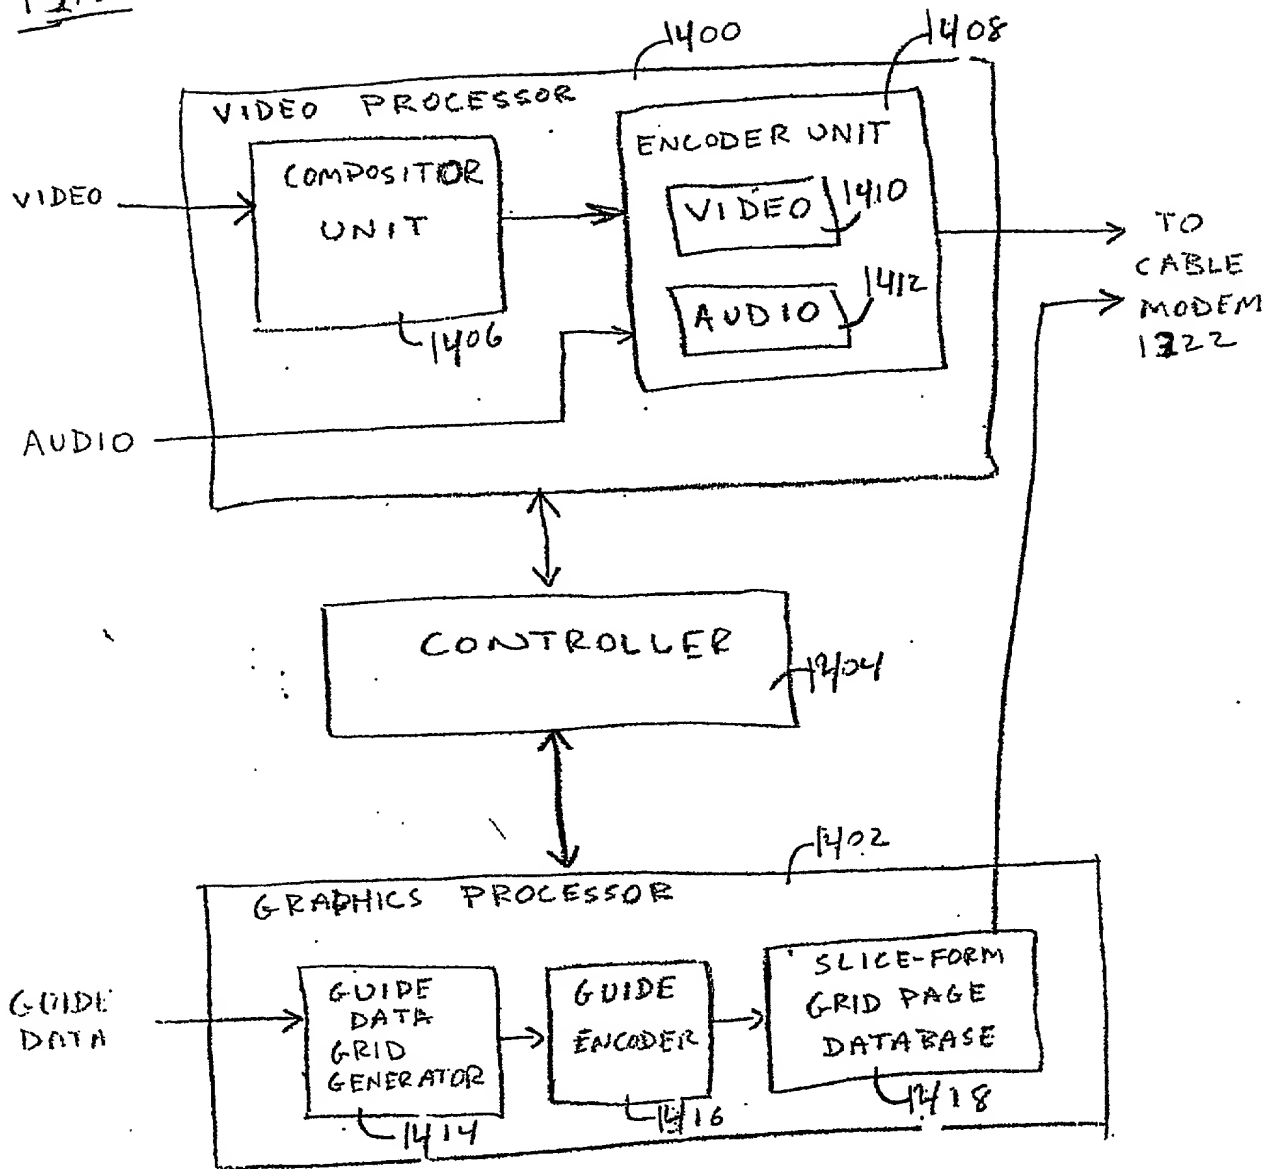 1400
1408
VIDEO PROCESSOR
COMPOSITOR
UNIT
1406
ENCODER UNIT
VIDEO
1410
AUDIO
1412
VIDEO
AUDIO
TO
CABLE
MODEM
1322
CONTROLLER
1404
1402
GRAPHICS PROCESSOR
GUIDE
DATA
GUIDE
DATA
GRID
GENERATOR
1414
GUIDE
ENCODER
1416
SLICE-FORM
GRID PAGE
DATABASE
1418